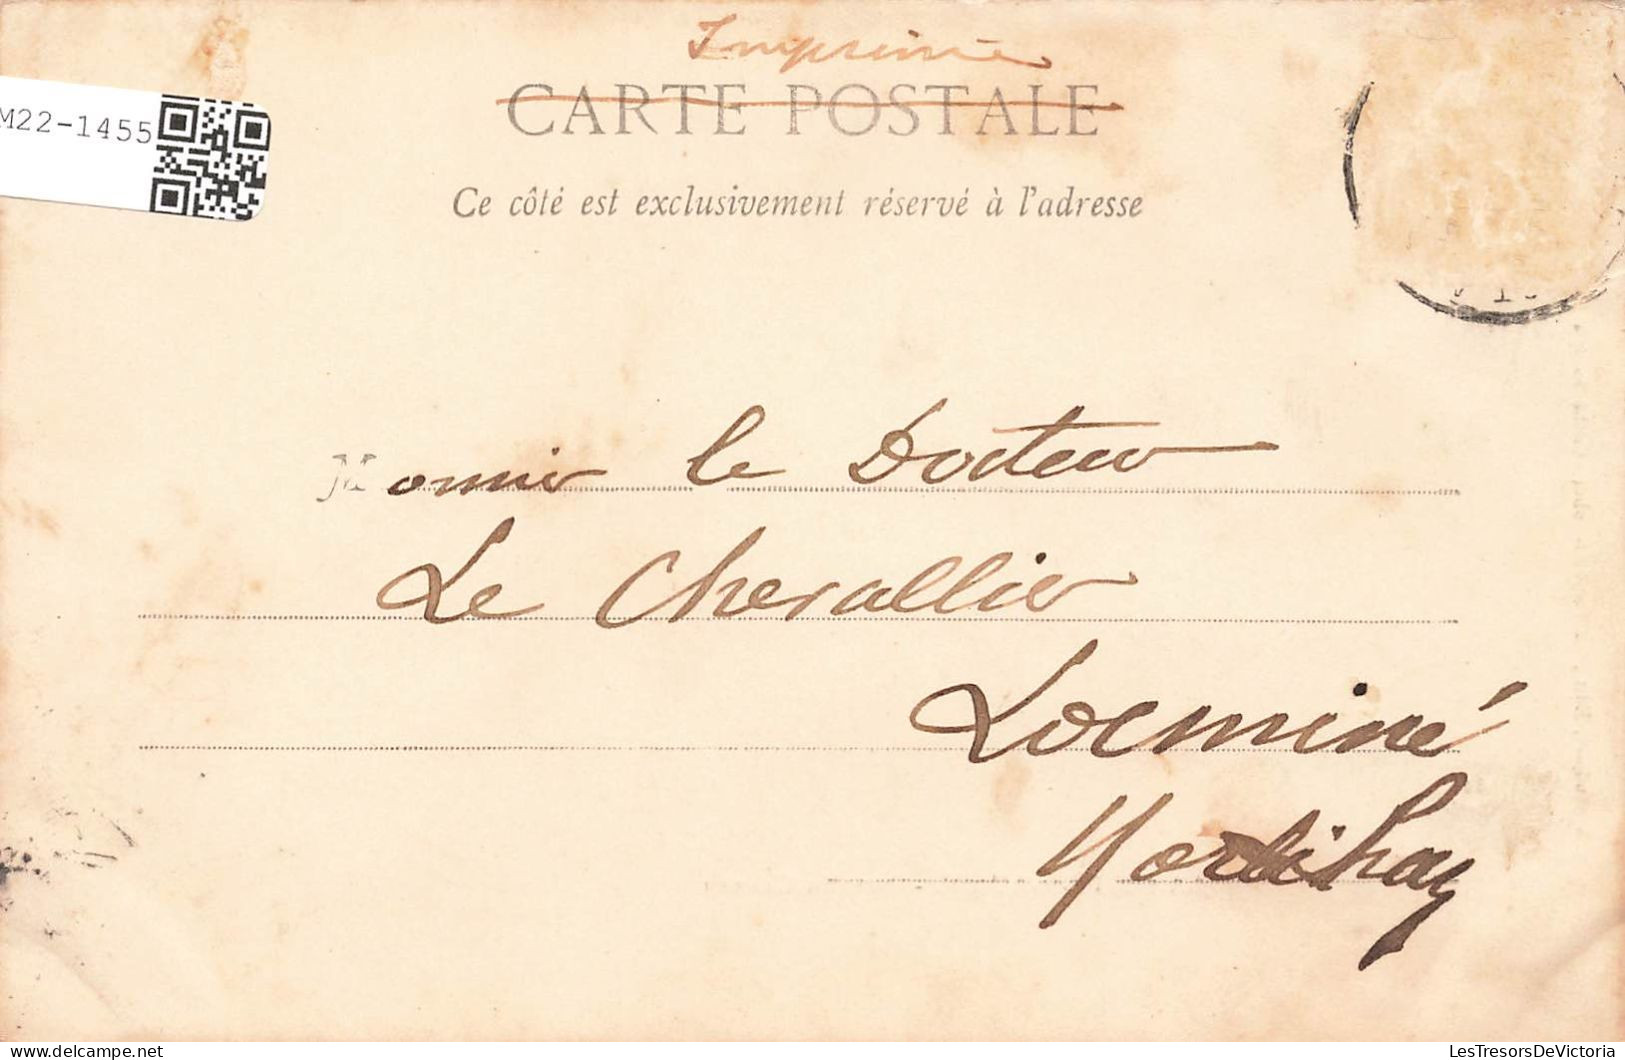 Imprimé
CARTE POSTALE
M22-1455
Ce côté est exclusivement réservé à l'adresse
Monsieur le Docteur
Le Chevallier
Locminé
Morbihan
LesTresorsDeVictoria